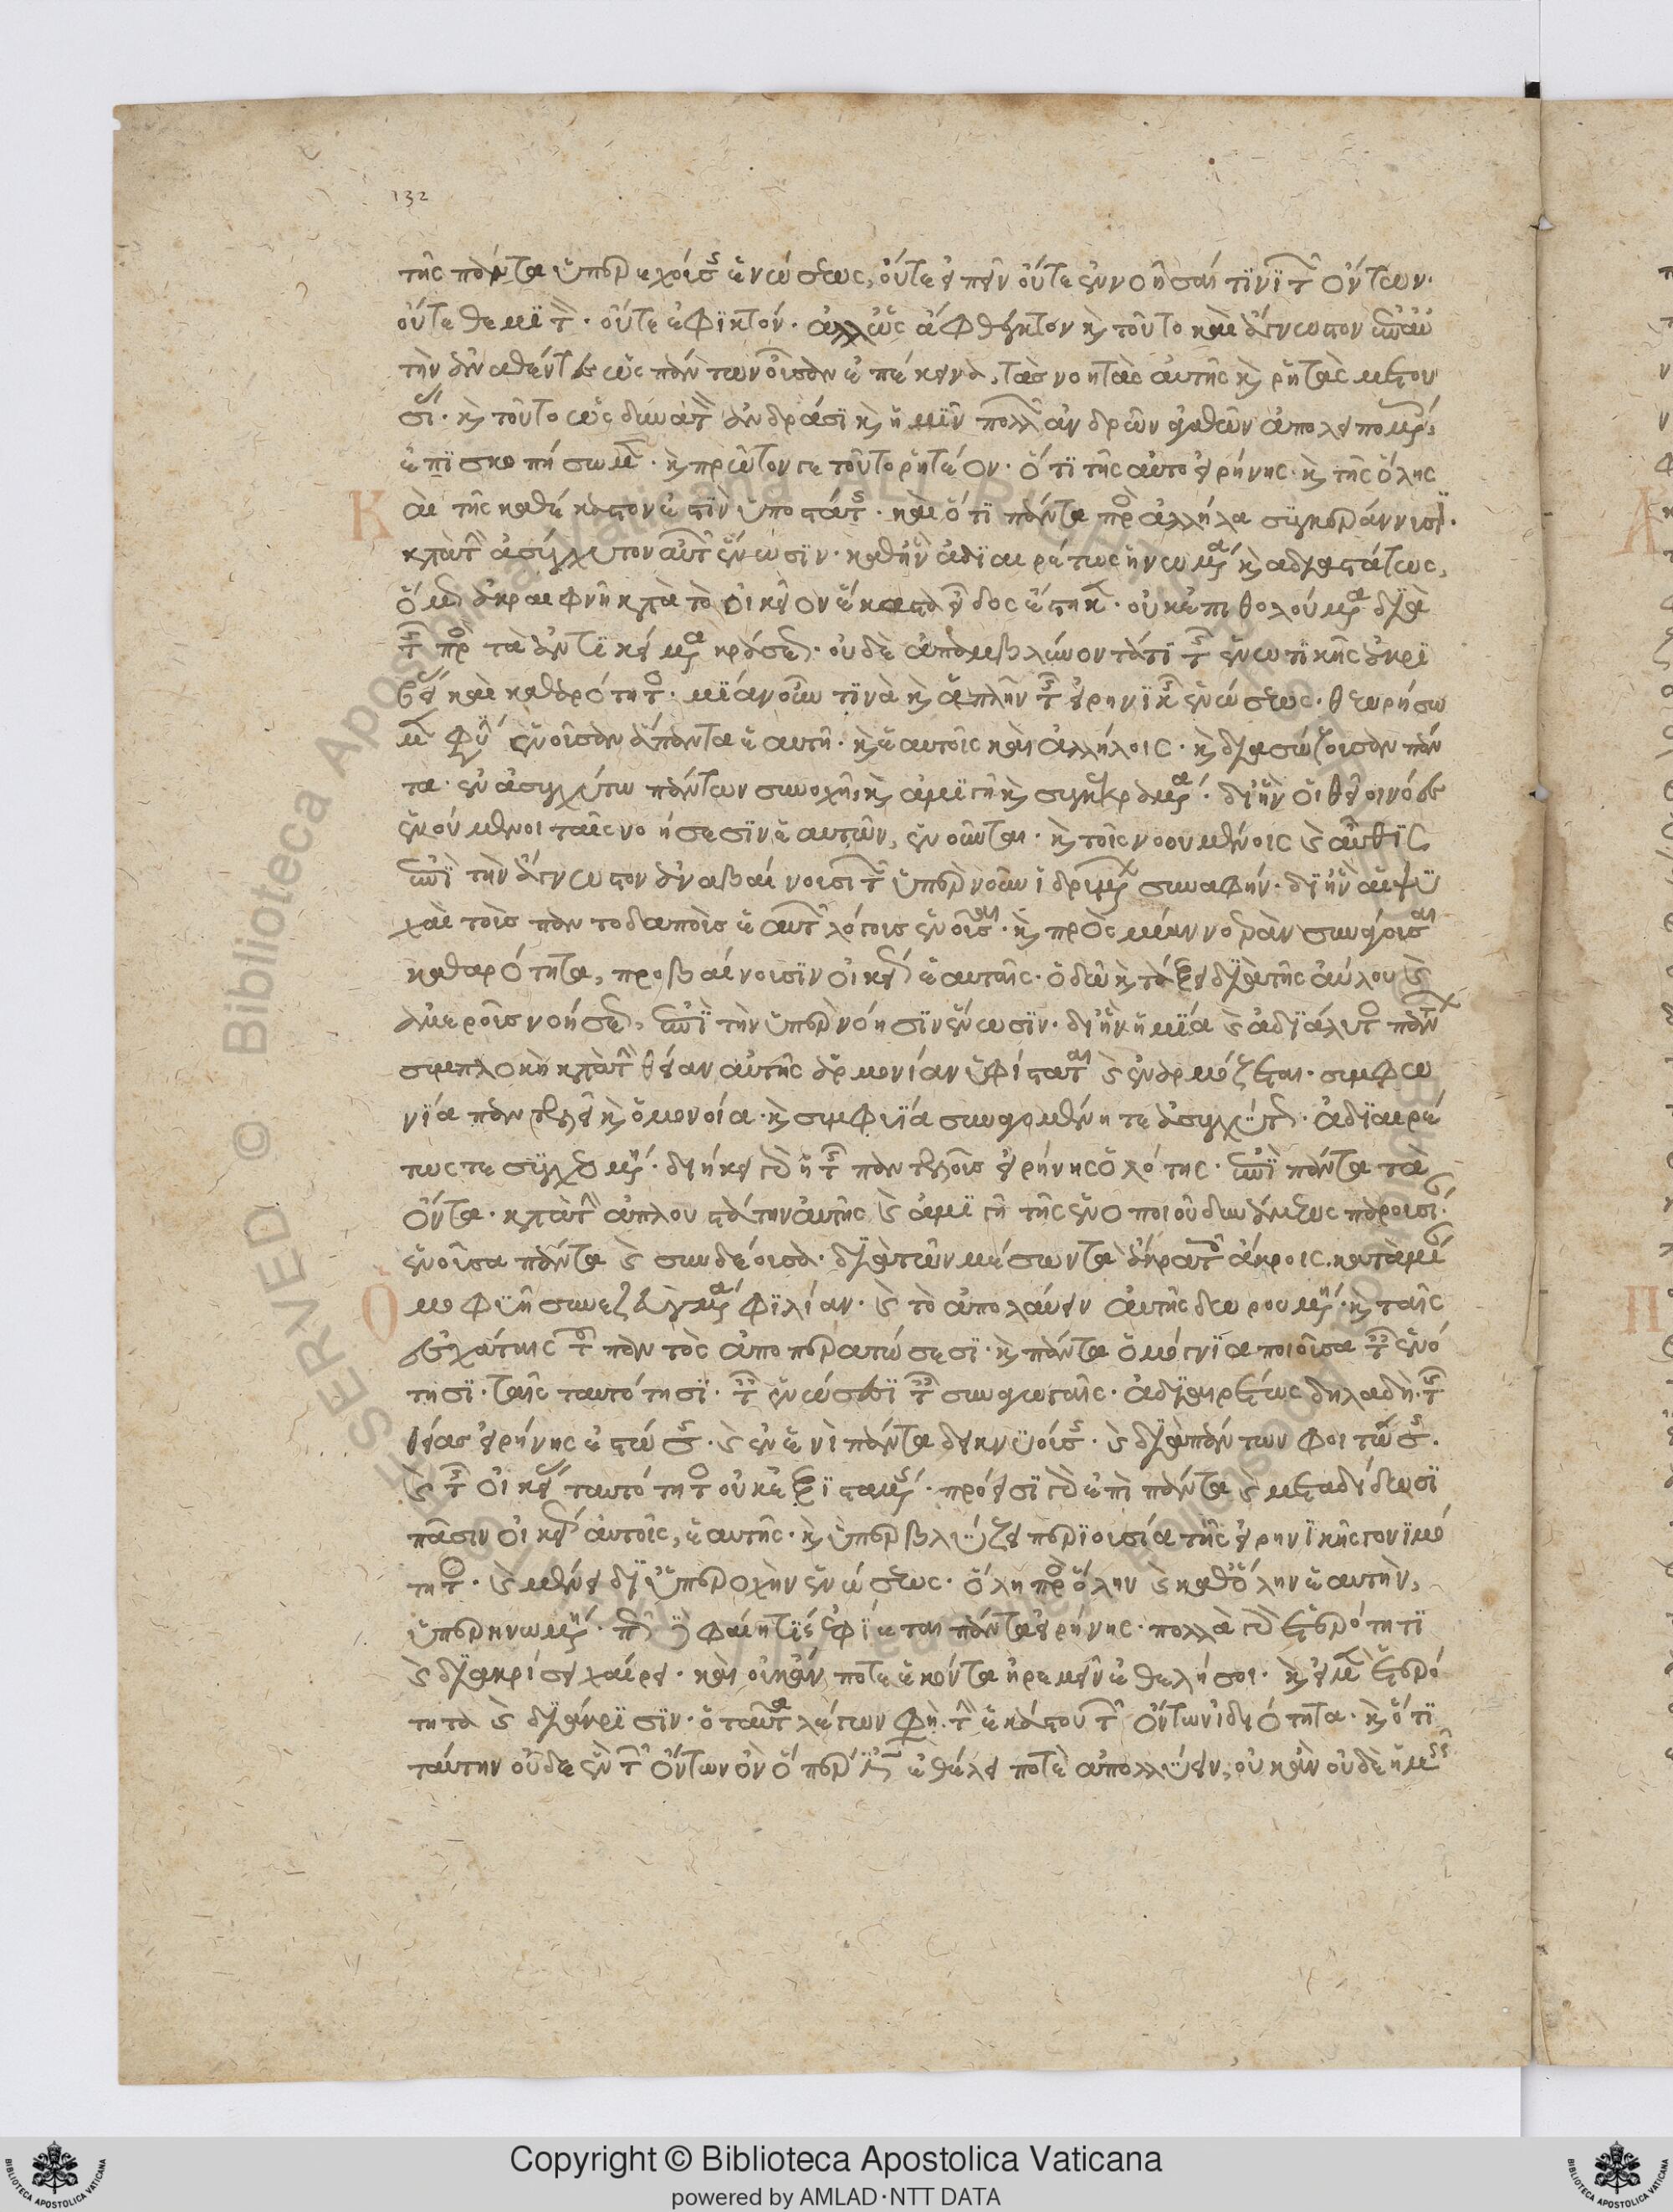 132
τῆς πάντα ὑπερεχούσης ἑνώσεως, οὔτε εἰπεῖν οὔτε ἐννοῆσαί τινι τῶν ὄντων·
οὔτε θεμιτὸν· οὔτε ἐφικτόν· ἀλλ' ὡς ἄφθεγκτον καὶ τοῦτο καὶ ἄγνωστον ἐπ' αὐ
τὴν ἀναθέντες ὡς πάντων οὖσαν ἐπέκεινα, τὰς νοητὰς αὐτῆς καὶ ῥητὰς μετου
σίας· καὶ τοῦτο ὡς δυνατὸν ἀνδράσι καὶ ἡμῖν πολλῶν ἀνδρῶν ἀγαθῶν ἀπολειπομένοις
ἐπισκοπήσωμεν· καὶ πρῶτόν γε τοῦτο ῥητέον· ὅτι τῆς αὐτοειρήνης· καὶ τῆς ὅλης
Καὶ τῆς καθ' ἕκαστόν ἐστιν ὑποστάτης· καὶ ὅτι πάντα πρὸς ἄλληλα συγκεράννυσι·
κατὰ τὴν ἀσύγχυτον αὐτῶν ἕνωσιν· καθ' ἣν ἀδιαιρέτως ἡνωμένα καὶ ἀδιαστάτως,
ὅμως ἀκραιφνῆ κατὰ τὸ οἰκεῖον ἕκαστα εἶδος ἕστηκεν· οὐκ ἐπιθολούμενα διὰ
τῆς πρὸς τὰ ἀντικείμενα κράσεως· οὐδὲ ἀπαμβλύνοντά τι τῆς ἑνωτικῆς ἀκρι
βείας καὶ καθαρότητος· μίαν οὖν τινὰ καὶ ἁπλῆν τῆς εἰρηνικῆς ἑνώσεως· θεωρήσω
μεν φύσιν ἑνοῦσαν ἅπαντα ἑαυτῇ· καὶ ἑαυτοῖς καὶ ἀλλήλοις· καὶ διασώζουσαν πάν
τα· ἐν ἀσυγχύτῳ πάντων συνοχῇ, καὶ ἀμιγῆ καὶ συγκεκραμένα· δι' ἣν οἱ θεῖοι νόες
ἑνούμενοι ταῖς νοήσεσιν ἑαυτῶν, ἑνοῦνται· καὶ τοῖς νοουμένοις καὶ αὖθις
ἐπὶ τὴν ἄγνωστον ἀναβαίνουσι τῶν ὑπὲρ νοῦν ἱδρυμένων συναφήν· δι' ἣν αἱ ψυ
χαὶ τοὺς παντοδαποὺς ἑαυτῶν λόγους ἑνοῦσαι· καὶ πρὸς μίαν νοερὰν συνάγουσαι
καθαρότητα, προβαίνουσιν οἰκείως ἑαυταῖς· ὁδῷ καὶ τάξει διὰ τῆς ἀΰλου καὶ
ἀμεροῦς νοήσεως, ἐπὶ τὴν ὑπὲρ νόησιν ἕνωσιν· δι' ἣν ἡ μία καὶ ἀδιάλυτος πάντων
συμπλοκὴ κατὰ τὴν θείαν αὐτῆς ἁρμονίαν ὑφίσταται καὶ ἐναρμόζεται· συμφω
νίᾳ παντελεῖ καὶ ὁμονοίᾳ· καὶ συμφυΐᾳ συναγομένη τε ἀσυγχύτως· ἀδιαιρέ
τως τε συνεχομένη· διήκει γὰρ ἡ τῆς παντελοῦς εἰρήνης ὁλότης· ἐπὶ πάντα τὰ
ὄντα· κατὰ τὴν ἁπλουστάτην αὐτῆς καὶ ἀμιγῆ τῆς ἑνοποιοῦ δυνάμεως παρουσίαν·
Ἑνοῦσα πάντα καὶ συνδέουσα· διὰ τῶν μέσων τὰ ἄκρα τοῖς ἄκροις κατὰ μίαν
ὁμοφυῆ συνεζευγμένα φιλίαν· καὶ τὸ ἀπολαύειν αὐτῆς δωρουμένη· καὶ ταῖς
ἐσχάταις τοῦ παντὸς ἀποπερατώσεσι· καὶ πάντα ὁμόγνια ποιοῦσα ταῖς ἑνό
τησι· ταῖς ταυτότησι· ταῖς ἑνώσεσι ταῖς συναγωγαῖς· ἀδιαιρέτως δηλαδὴ· τῆς
θείας εἰρήνης ἑστώσης· καὶ ἐν ἑνὶ πάντα δεικνυούσης· καὶ διὰ πάντων φοιτώσης·
καὶ τῆς οἰκείας ταυτότητος οὐκ ἐξισταμένης· πρόεισι γὰρ ἐπὶ πάντα καὶ μεταδίδωσι
πᾶσιν οἰκείως αὐτοῖς, ἑαυτῆς· καὶ ὑπερβλύζει περιουσίᾳ τῆς εἰρηνικῆς γονιμό
τητος· καὶ μένει δι' ὑπεροχὴν ἑνώσεως· ὅλη πρὸς ὅλην καὶ καθ' ὅλην ἑαυτὴν,
ὑπερηνωμένη· πῶς δὲ φαίη τις ἐφίεται πάντα εἰρήνης· πολλὰ γὰρ ἑτερότητι
καὶ διακρίσει χαίρει· καὶ οὐκ ἄν ποτε ἑκόντα ἠρεμεῖν ἐθελήσοι· καὶ εἰ μὲν ἑτερό
τητα καὶ διάκρισιν· ὁ ταῦτα λέγων φησὶ· τὴν ἑκάστου τῶν ὄντων ἰδιότητα· καὶ ὅτι
ταύτην οὐδὲ ἓν τῶν ὄντων ὂν ὅπερ ἐστὶν ἐθέλει ποτὲ ἀπολλύειν, οὐκ ἂν οὐδὲ ἡμεῖς
Copyright © Biblioteca Apostolica Vaticana
powered by AMLAD·NTT DATA